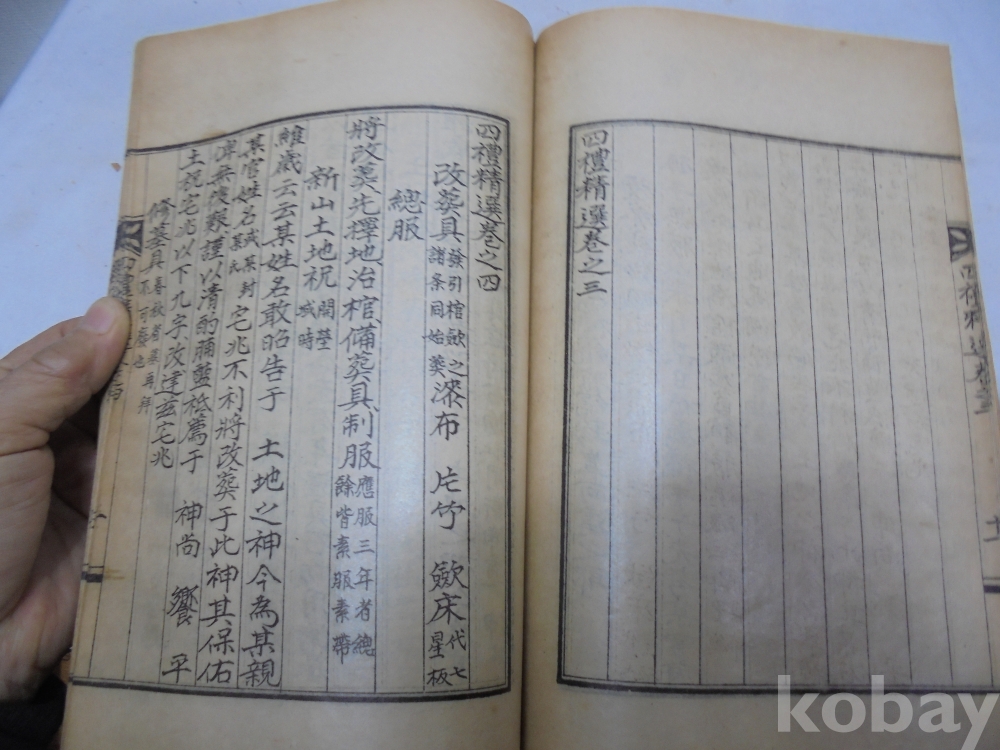 四禮精選卷之三
四禮精選卷之四
改葬具 發引棺斂之諸条同始葬 漆布 片竹 斂床 代七星板
緦服
將改葬先擇地治棺備葬具制服 應服三年者緦餘皆素服素帶
新山土地祝 開塋域時
維歲云云某姓名敢昭告于 土地之神今為某親
某官姓名 或某封某氏 宅兆不利將改葬于此神其保佑
俾無後艱謹以清酌脯醢祗薦于 神尚 饗 平
土祝宅兆以下九字改建玆宅兆
修墓具
kobay